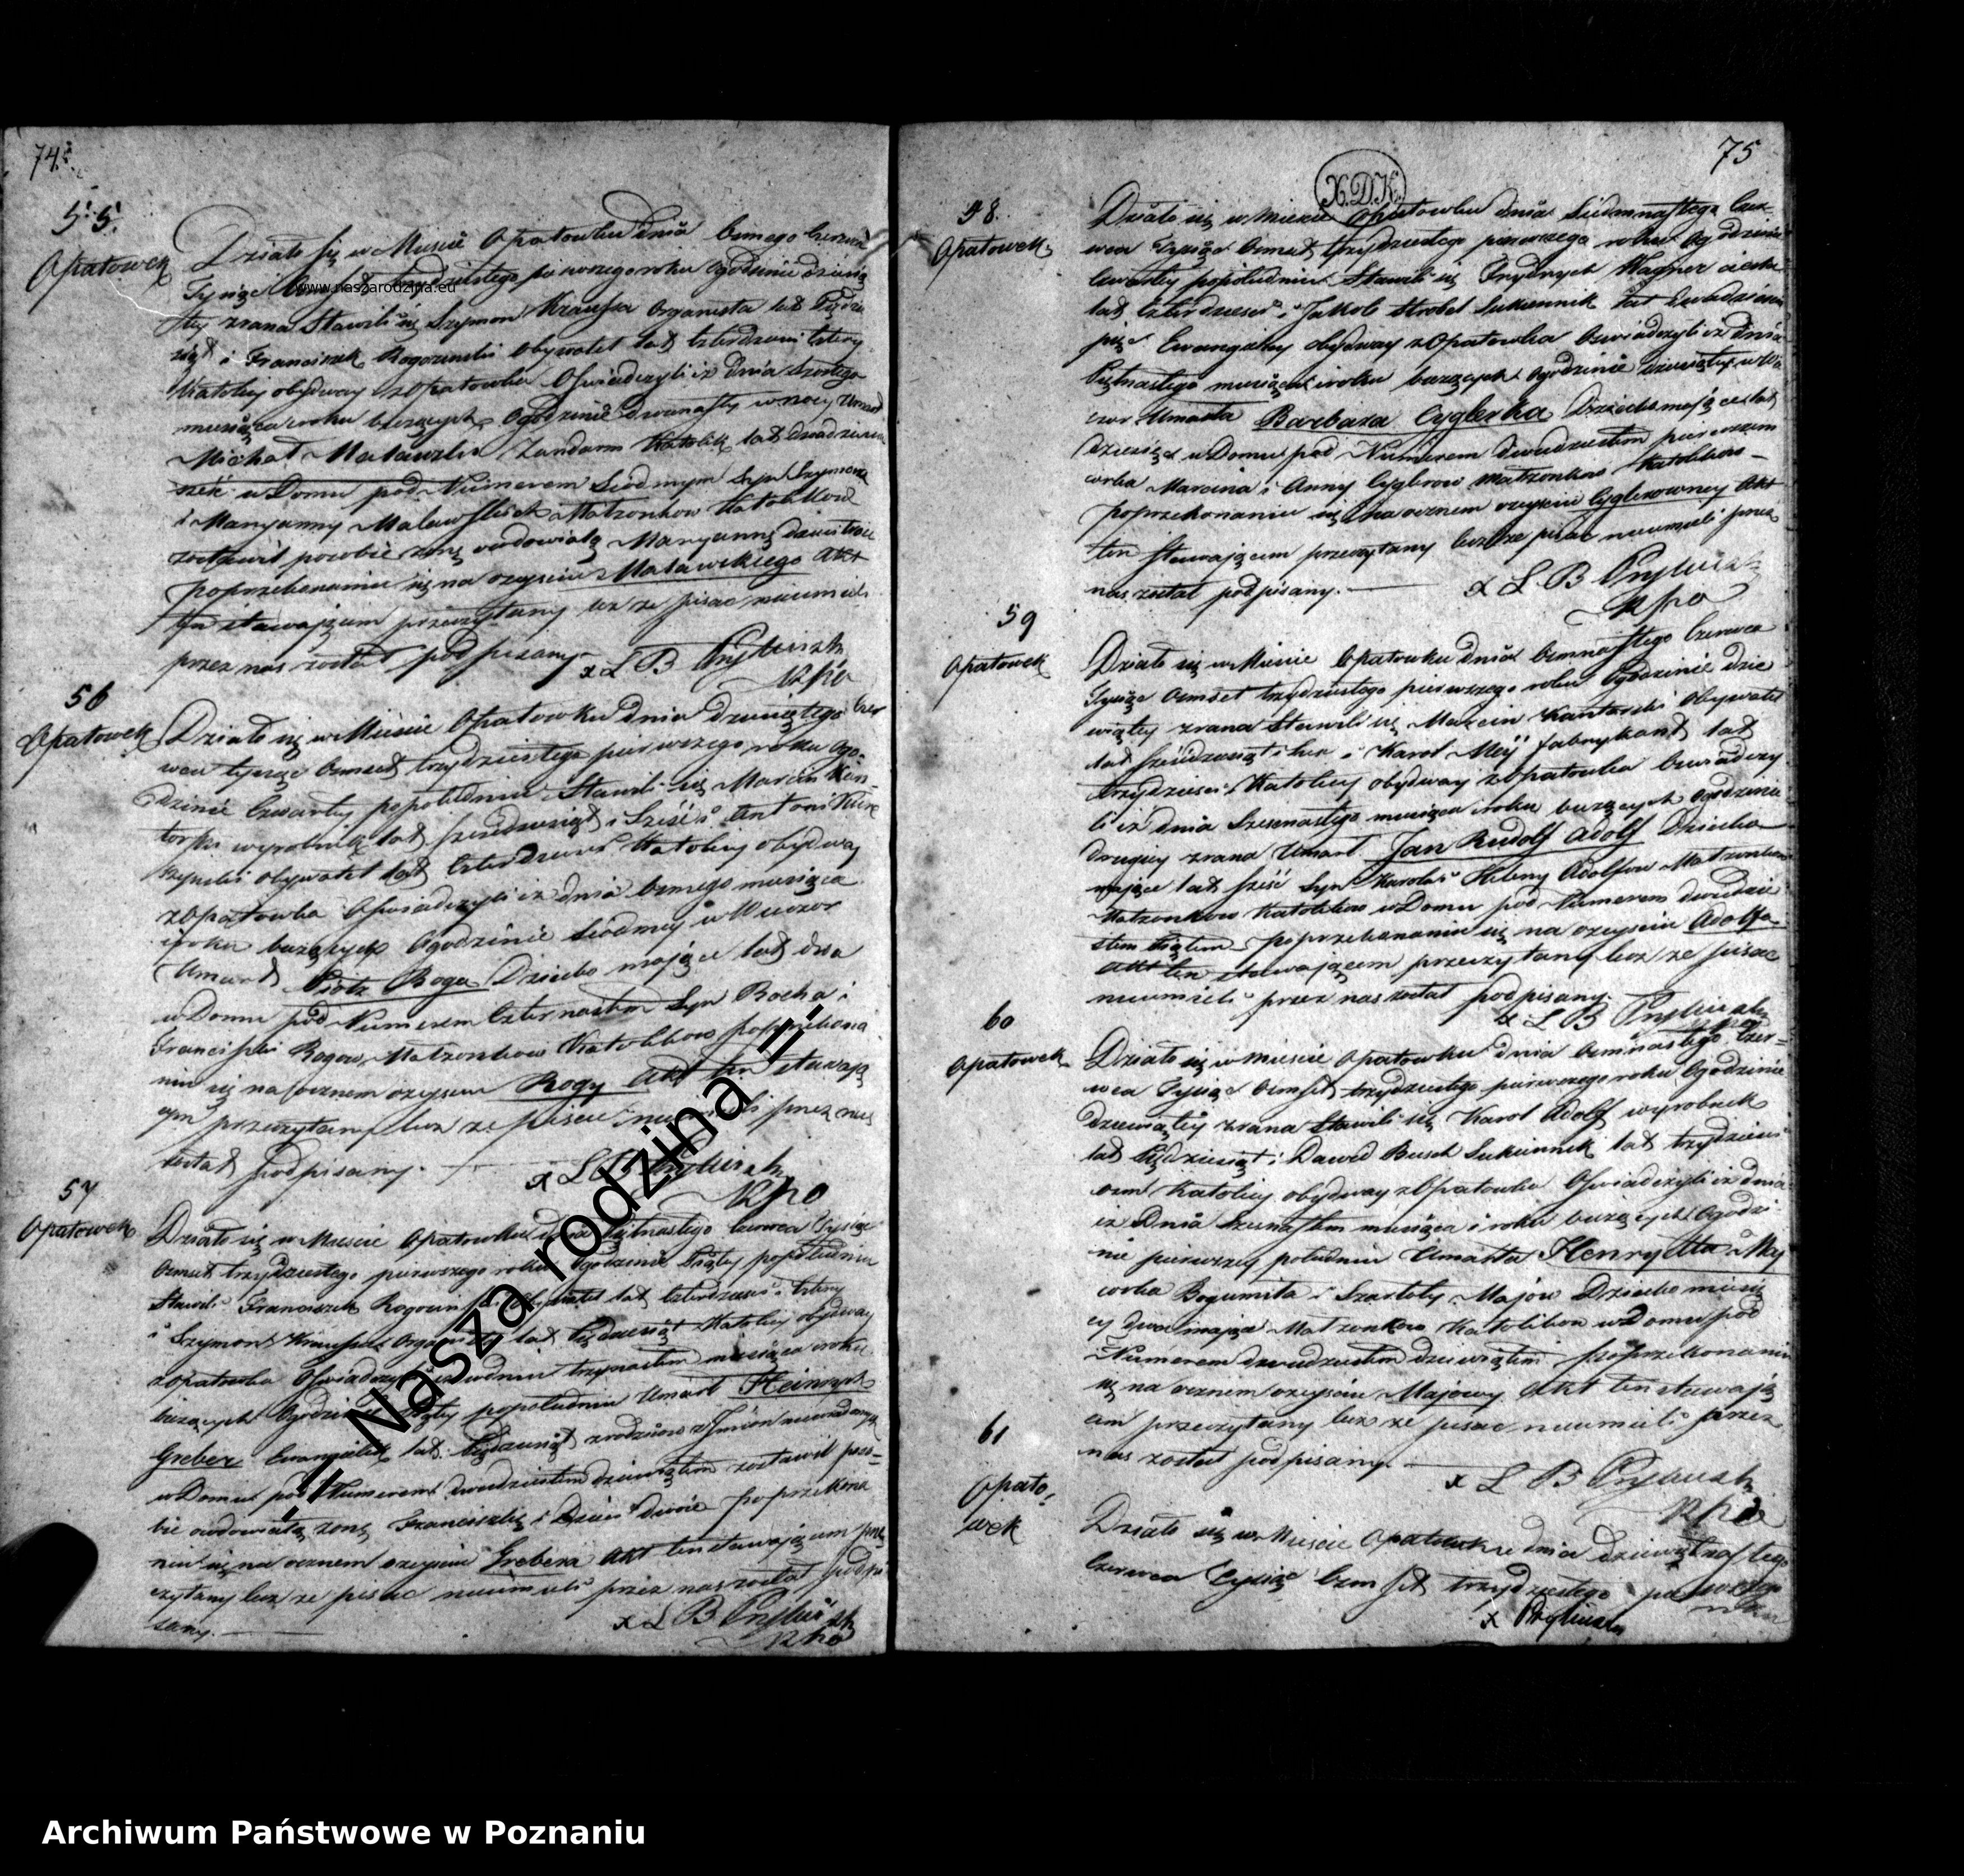 74.
55.
Opatowek
Działo się w Mieście Opatowku dnia Osmego Czerwca
Tysiąc Osmset trzydziestego pierwszego roku Ogodzinie dziewią
tey zrana Stawili się Szymon Kraussa Organista lat Pięćdzie
siąt i Franciszek Rogozinski Obywatel lat czterdziesci cztery
Katolicy obydway z Opatowka Oswiadczyli iż dnia Szostego
miesiąca i roku bieżących Ogodzinie dwunasty w nocy Umarł
Michał Malawski Zandarm Katolik lat dwadziescia
sześć w Domu pod Numerem Siodmym Syn Szymona
i Maryanny Malawskich Małżonkow Katolikow
zostawił po sobie żonę owdowiałą Maryannę
poprzekonaniu się na oczyscie Malawskiego Akt
ten stawającym przeczytany lecz że pisac nieumieli
przez nas został podpisany.
56
Opatowek
Działo się w Mieście Opatowku dnia dziewiątego Czer
wca tysiąc Osmset trzydziestego pierwszego roku Ogo-
dzinie Czwarty popołudniu Stawili się Marcin Kan
torski wyrobnik lat sześćdziesiąt i Sześć i Antoni
obywatel lat Czterdziesci Katolicy obydway
z Opatowka Oswiadczyli iż dnia Osmego miesiąca
i roku bieżących Ogodzinie Siodmey w Wieczor
Umarł Piotr Roga Dziecko mające lat dwa
w Domu pod Numerem Czternastem Syn Rocha i
Franciszki Rogow Małżonkow Katolikow poprzekona
niu się na ocznem oczyscie Rogy Akt ten stawają
cym przeczytany lecz ze pisac nieumieli przez nas
został podpisany.
57
Opatowek
Działo się w Mieście Opatowku dnia Piętnastego Czerwca Tysiąc
Osmset trzydziestego pierwszego roku Ogodzinie Piąty popołudniu
Stawili Franciszek Rogozinski Obywatel lat Czterdziesci i Cztery
i Szymon Kraussa Organista lat Pięćdziesiąt Katolicy obydway
z Opatowka Oswiadczyli iż w dniu trzynastem miesiąca i roku
bieżących Ogodzinie popołudniu Umarł Heinrych
Greber Ewangielik lat Pięćdziesiąt z rodzicow z Jmion niewiadomych
w Domu pod Numerem dwudziestem dziewiątem zostawił poso-
bie owdowiałą żonę Franciszkę i Dzieci dwoie poprzekona
niu się na ocznem oczyscie Grebera Akt ten stawającym prze
czytany lecz że pisac nieumieli przez nas został podpi
sany.
75
X.D.K.
58.
Opatowek
Działo się w Mieście Opatowku dnia Siedmnastego Czer
wca Tysiąc Osmset trzydziestego pierwszego roku Ogodzinie
Czwartey popołudniu Stawili się Frydrych Wagner ciesla
lat Czterdziesci i Jakob Strobel Sukiennik lat dwadziescia
pięć Ewangelicy obydway z Opatowka Oswiadczyli iż dnia
Piętnastego miesiąca i roku bieżących Ogodzinie dziewiątey w Wie
czor Umarła Barbara Cyglerka Dziecko mające lat
Dziesięć w Domu pod Numerem dwudziestem pierwszem
corka Marcina i Anny Cyglerow Małżonkow Katolikow-
poprzekonaniu się na ocznem oczyscie Cyglerowney Akt
ten stawającem przeczytany lecz że pisac nieumieli przez
nas został podpisany.
59
Opatowek
Działo się w Mieście Opatowku dnia Osmnastego Czerwca
Tysiąc Osmset trzydziestego pierwszego roku Ogodzinie dzie
wiątey zrana Stawili się Marcin Kantorski Obywatel
lat Sześćdziesiąt i Karol Mey fabrykant lat
trzydziesci Katolicy obydway z Opatowka Oswiadczy
li iż dnia Szesnastego miesiąca i roku bieżących Ogodzinie
drugiey zrana Umarł Jan Rudolf Adolf Dziecko
mające lat sześć Syn Karola i Heleny Adolfow Małżonkow
Małżonkow Katolikow w Domu pod Numerem dwudzie
stem Piątem poprzekonaniu się na oczyscie Adolfa-
Akt ten stawającem przeczytany lecz że pisac
nieumieli przez nas został podpisany.
60
Opatowek
Działo się w Mieście Opatowku dnia Osmnastego Czer-
wca Tysiąc Osmset trzydziestego pierwszego roku Ogodzinie
Dziewiątey zrana Stawili się Karol Adolf wyrobnik
lat Pięćdziesiąt i Dawid Busch Sukiennik lat trzydziesci
osm Katolicy obydway z Opatowka Oswiadczyli iż dnia
iż Dnia Szesnastem miesiąca i roku bieżących Ogodzi
nie pierwszey południu Umarła Henrytta May
corka Bogumiła i Szarloty Majow Dziecko miesię
cy dwa mające Małżonkow Katolikow w Domu pod
Numerem dwudziestem dziewiątem poprzekonaniu
się na ocznem oczyscie Majowy Akt ten stawają
cem przeczytany lecz że pisac nieumieli przez
nas został podpisany.
61
Opato-
wek
Działo się w Mieście Opatowku dnia dziewiętnastego
Czerwca Tysiąc Osmset trzydziestego pierwszego
roku
www.naszarodzina.eu
-= Nasza rodzina =-
Archiwum Państwowe w Poznaniu